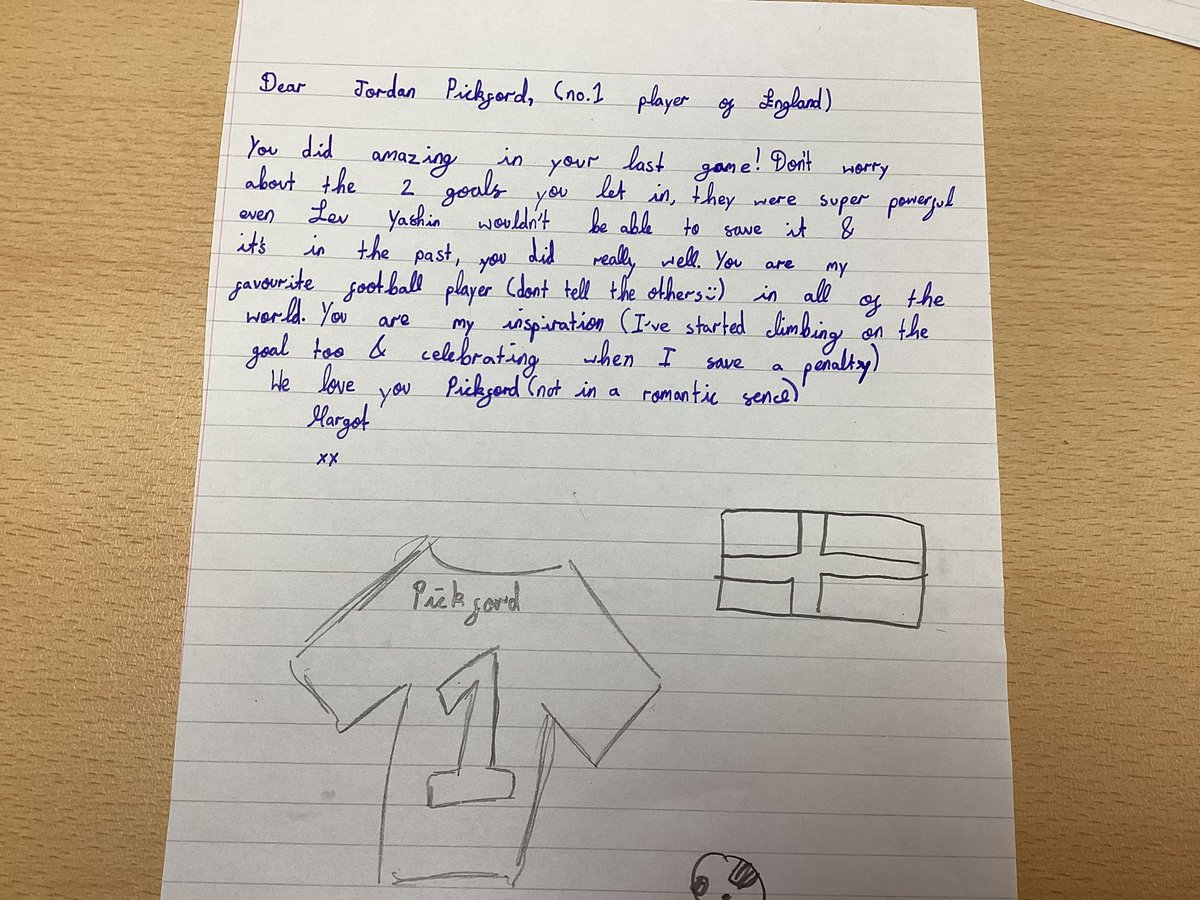 Dear Jordan Pickford, (no.1 player of England)
You did amazing in your last game! Don't worry
about the 2 goals you let in, they were super powerful
even Lev Yashin wouldn't be able to save it &
it's in the past, you did really well. You are my
favourite football player (dont tell the others:)) in all of the
world. You are my inspiration (I've started climbing on the
goal too & celebrating when I save a penalty)
We love you Pickford (not in a romantic sence)
Margot
xx
Pickford
1